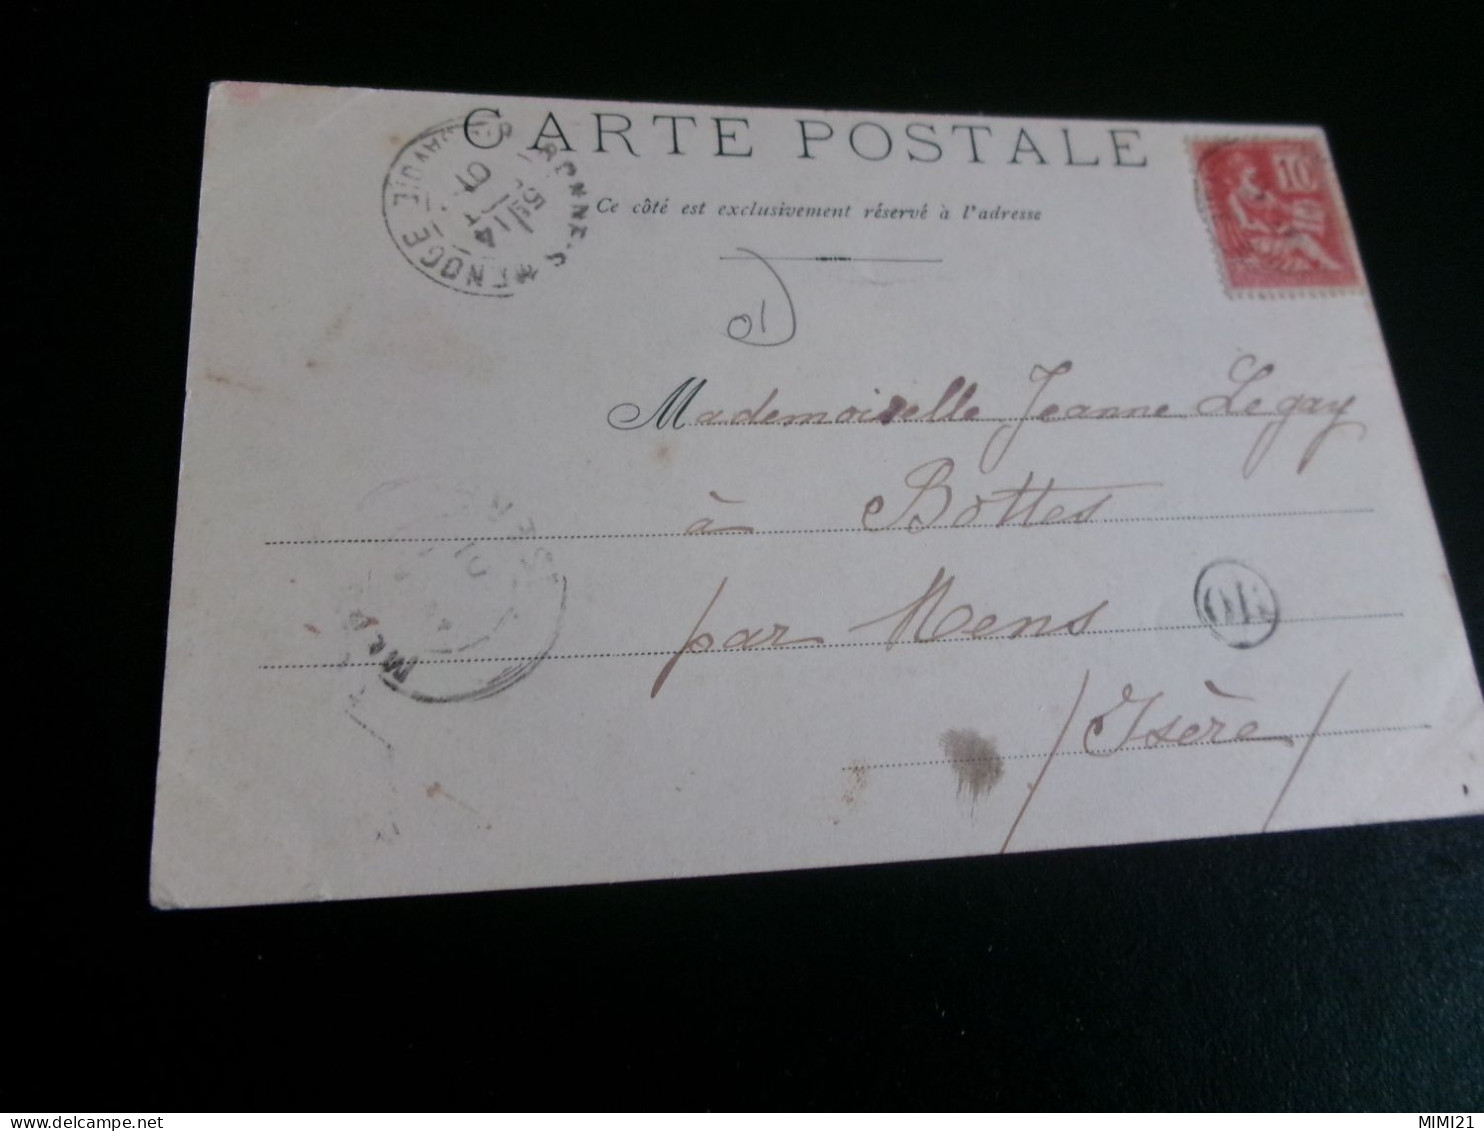 CARTE POSTALE
Ce côté est exclusivement réservé à l'adresse
10
01
Mademoiselle Jeanne Legay
à Bottes
par Mens
/ Isère /
MIMI21